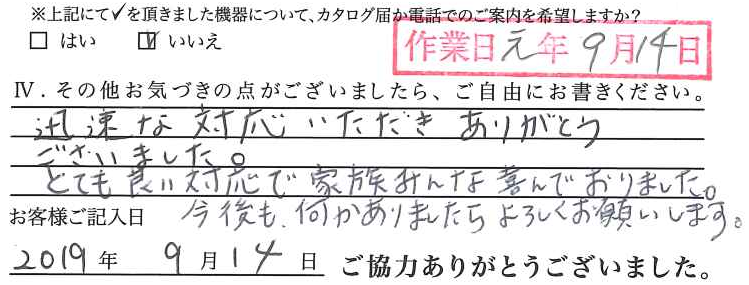 ※上記にて✓を頂きました機器について、カタログ届か電話でのご案内を希望しますか？
□ はい ☑ いいえ
作業日元年9月14日
Ⅳ．その他お気づきの点がございましたら、ご自由にお書きください。
迅速な対応いただきありがとう
ございました。
とても良い対応で家族みんな喜んでおりました。
今後も、何かありましたらよろしくお願いします。
お客様ご記入日
2019年 9月14日 ご協力ありがとうございました。